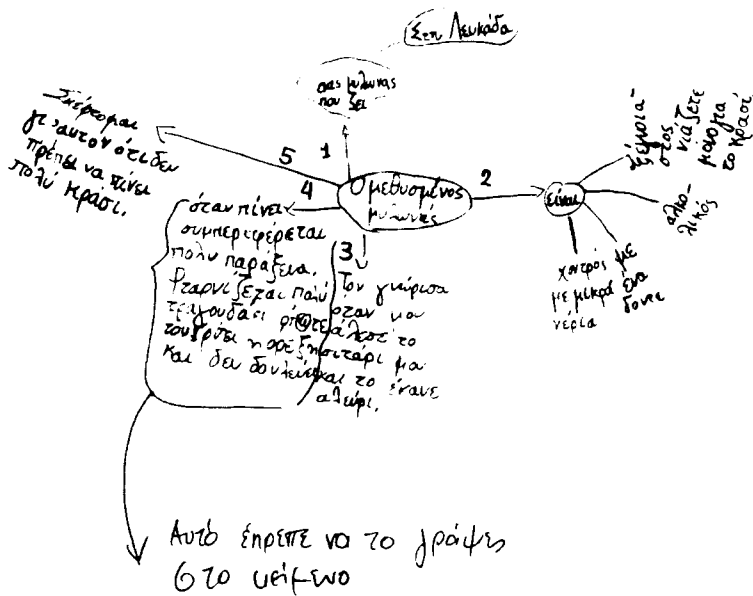 Στη Λευκάδα
μυλωνάς
που ζει
1
Ο μεθυσμένος
μυλωνάς
2
είναι
νιάζετε
μόνο για
το κρασί
αλκο-
λικός
με
ένα
δοντι
χοντρός
με μικρά
χέρια
3
Τον γνώρισα
όταν μου
άλεσε το
σιτάρι μου
και το έκανε
αλεύρι.
4
όταν πίνει
συμπεριφέρεται
πολυ παράξενα.
Φταρνίζεται πολύ
τραγουδάει
και δεν δουλεύει
5
Σκέφτομαι
γι' αυτον ότι δεν
πρέπει να πίνει
πολύ κράσι.
Αυτό έπρεπε να το γράψεις
στο κείμενο